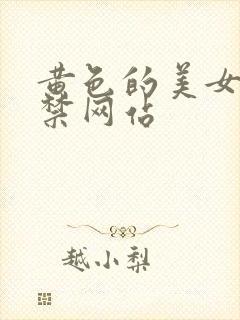 黄色的美女
禁网站
越小梨